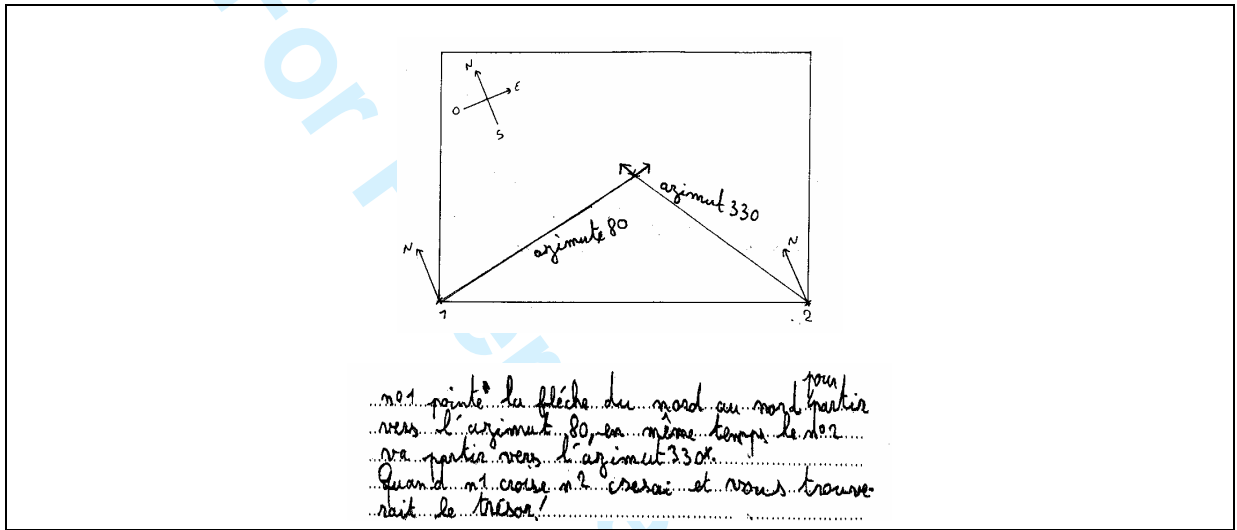 N
E
O
S
azimut 330
azimute 80
N
N
1
2
n°1 pointe la fléche du nord au nord pour partir
vers l'azimut 80, en même temps le n°2
va partir vers l'azimut 330.
Quand n1 croise n2 csesai et vous trouve-
rait le trésor!